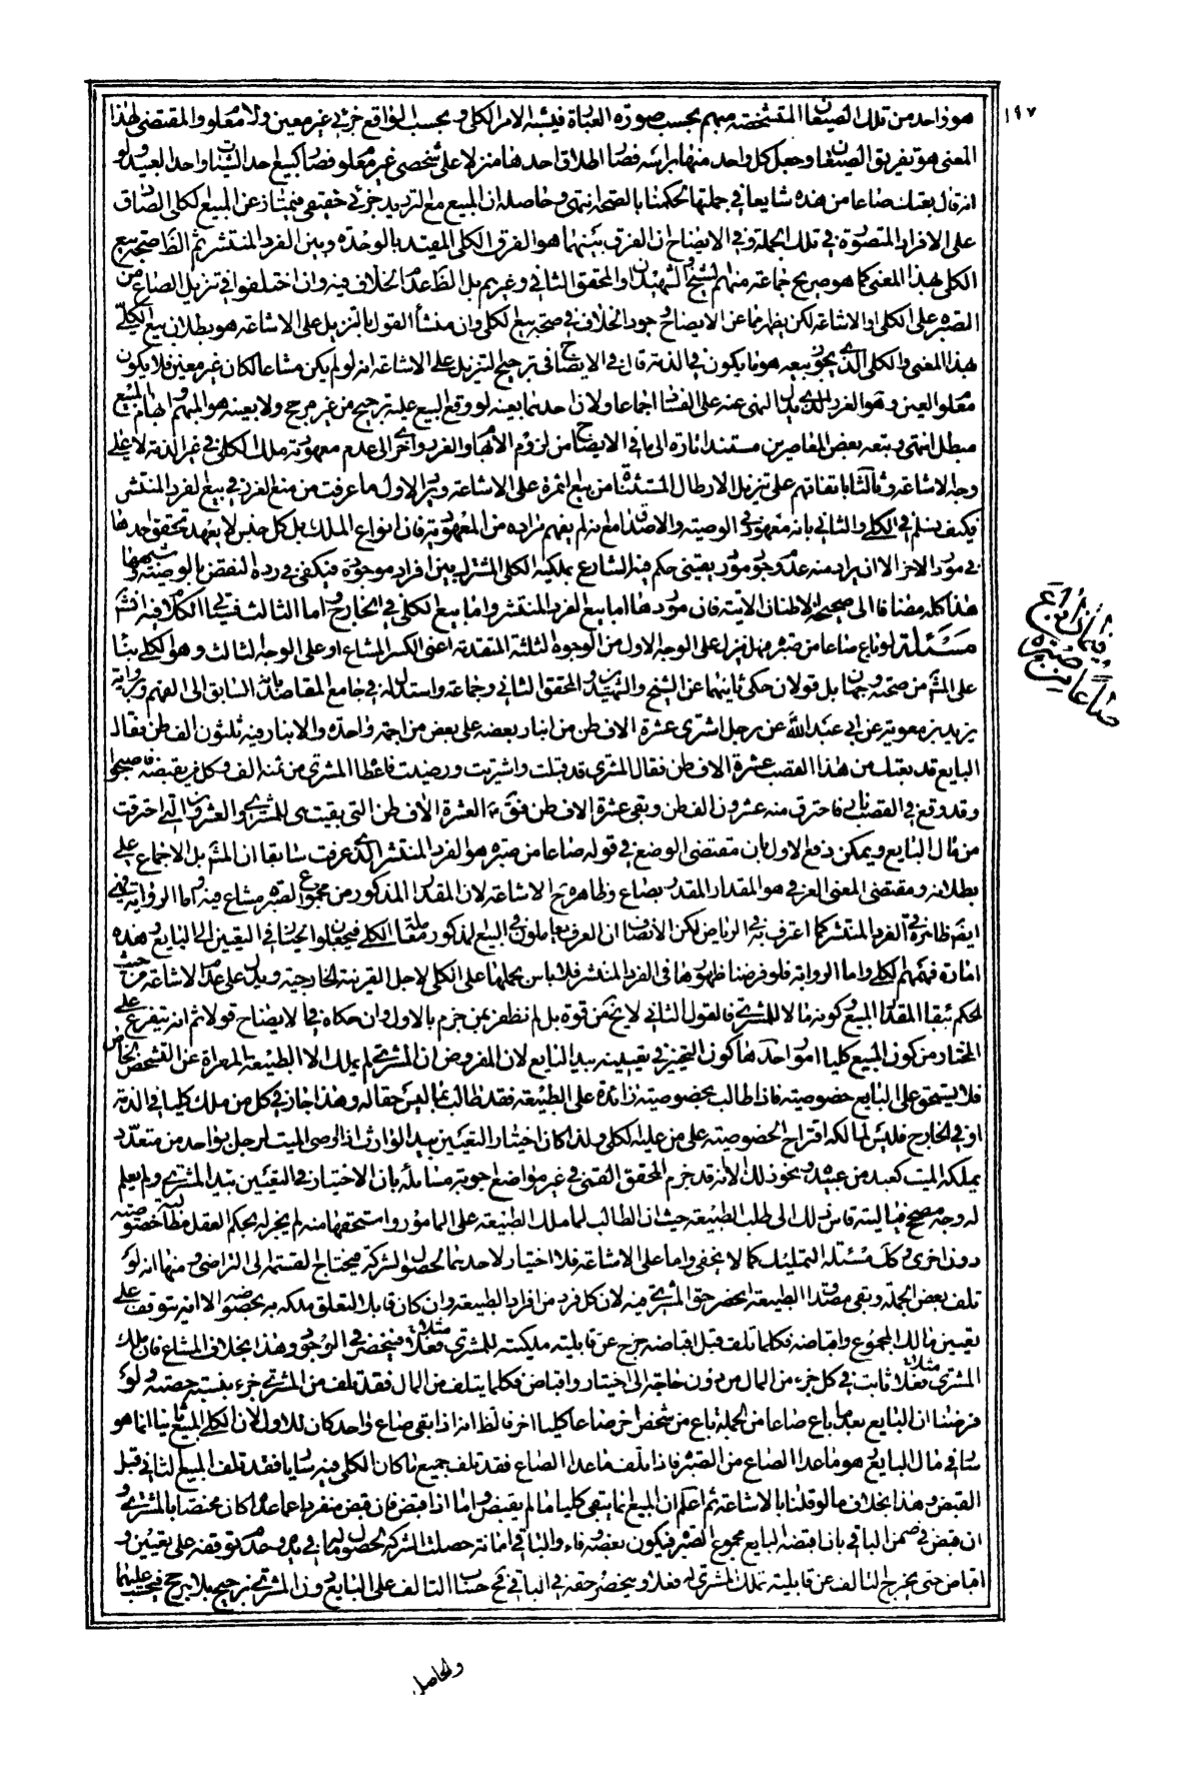 ١٩٧
هو واحد من تلك الصيعان المتشخصة مبهم بحسب صورة العبارة فيشبه الامر الكلى وبحسب الواقع جزئى غير معين ولا معلوم والمقتضى لهذا
المعنى هو تفريق الصيعان وجعل كل واحد منها براسه فصار اطلاق احدها منزلا على شخصى غير معلوم فصار كبيع احد الشياه واحد العبيد ولو
انه قال بعتك صاعا من هذه شايعا فى جملتها لحكمنا بالصحة انتهى وحاصله ان المبيع مع الترديد جزئى حقيقى فيمتاز عن المبيع الكلى الصادق
على الافراد المتصورة فى تلك الجملة وفى الايضاح ان الفرق بينهما هو الفرق بين الكلى المقيد بالوحدة وبين الفرد المنتشر ثم الظ صحة بيع
الكلى بهذا المعنى كما هو صريح جماعة منهم الشيخ والشهيدان والمحقق الثانى وغيرهم بل الظ عدم الخلاف فيه وان اختلفوا فى تنزيل الصاع من
الصبرة على الكلى او الاشاعة لكن يظهر مما عن الايضاح وجود الخلاف فى صحة بيع الكلى وان منشأ القول بالتنزيل على الاشاعة هو بطلان بيع الكلى
بهذا المعنى والكلى الذى يجوز بيعه هو ما يكون فى الذمة قال فى الايضاح فى ترجيح التنزيل على الاشاعة انه لو لم يكن مشاعا لكان غير معين فلا يكون
معلوم العين وهو الغرر الذى يدل النهى عنه على الفساد اجماعا ولان احدهما بعينه لو وقع البيع عليه ترجيح من غير مرجح ولا بعينه هو المبهم وابهام المبيع
مبطل انتهى وتبعه بعض المعاصرين مستندا تارة الى ما فى الايضاح من لزوم الابهام والغرر واخرى الى عدم معهودية ملك الكلى فى غير الذمة لا على
وجه الاشاعة وثالثا باتفاقهم على تنزيل الارطال المستثناة من بيع الثمرة على الاشاعة ويرد الاول ما عرفت من منع الغرر فى بيع الفرد المنتشر
فكيف نسلم فى الكلى والثانى بانه معهود فى الوصية والاصداق مع انه لم يفهم مراده من المعهودية فان انواع الملك بل كل جنس لا يعهد تحقق احدها
فى مورد الاخر الا ان يراد منه عدم وجود مورد يقينى حكم فيه الشارع بملكية الكلى المشترك بين افراد موجودة فيكفى فى رده النقض بالوصية وشبهها
هذا كله مضافا الى صحيحة الاطنان الاتية فان موردها اما بيع الفرد المنتشر واما بيع الكلى فى الخارج واما الثالث فسيجئ الكلام فيه انشـ
مسئلة لو باع صاعا من صبرة فهل ينزل على الوجه الاول من الوجوه الثلثة المتقدمة اعنى الكسر المشاع او على الوجه الثالث وهو الكلى بناء
على المشـ من صحته وجهان بل قولان حكى ثانيهما عن الشيخ والشهيدين والمحقق الثانى وجماعة واستدل له فى جامع المقاصد بانه السابق الى الفهم وبرواية
بريد بن معوية عن ابى عبد الله عن رجل اشترى عشرة الاف طن من انبار بعضه على بعض من اجمة واحدة والانبار فيه ثلثون الف طن فقال
البايع قد بعتك من هذا القصب عشرة الاف طن فقال المشترى قد قبلت واشتريت ورضيت فاعطاه المشترى من ثمنه الف درهم وكل من يقبضه فاصبحوا
وقد وقع فى القصب نار فاحترق منه عشرون الف طن وبقى عشرة الاف طن فقال ع العشرة الاف طن التى بقيت هى للمشترى والعشرون التى احترقت
من مال البايع ويمكن دفع الاول بان مقتضى الوضع فى قوله صاعا من صبرة هو الفرد المنتشر الذى عرفت سابقا ان المشـ بل الاجماع على
بطلانه ومقتضى المعنى العرفى هو المقدار المقدر بصاع وظاهره ح الاشاعة لان المقدار المذكور من مجموع الصبرة مشاع فيه واما الرواية فهى
ايضا ظاهرة فى الفرد المنتشر كما اعترف به فى الرياض لكن الانصاف ان العرف يعاملون فى البيع المذكور معاملة الكلى فيجعلون الخيار فى التعيين الى البايع وهذه
امارة فهمهم الكلى واما الرواية فلو فرضنا ظهورها فى الفرد المنتشر فلا باس بحملها على الكلى لاجل القرينة الخارجية وتدل على عدم الاشاعة من حيث
الحكم ببقاء المقدار المبيع وكونه مالا للمشترى فالقول الثانى لا يخ من قوة بل لم نظفر بمن جزم بالاول وان حكاه فى الايضاح قولا ثم انه يتفرع على
المختار من كون المبيع كليا امور احدها كون التخيير فى تعيينه بيد البايع لان المفروض ان المشترى لم يملك الا الطبيعة المعراة عن التشخص الخاص
فلا يستحق على البايع خصوصية فاذا طالب بخصوصية زائدة على الطبيعة فقد طالب بما ليس حقا له وهذا جار فى كل من ملك كليا فى الذمة
او فى الخارج فليس لمالكه اقتراح الخصوصية على من عليه الكلى ولذا كان اختيار التعيين بيد الوارث اذا اوصى الميت لرجل بواحد من متعدد
يملكه الميت كعبد من عبيده ونحو ذلك الا انه قد جزم المحقق القمى فى غير موضع من اجوبة مسائله بان الاختيار فى التعيين بيد المشترى ولم يعلم
له وجه مصحح فيا ليته قاس ذلك الى طلب الطبيعة حيث ان الطالب لما ملك الطبيعة على المامور واستحقها منه لم يجز له بحكم العقل مطالبة خصوصية
دون اخرى وكك مسئلة التمليك كما لا يخفى واما على الاشاعة فلا اختيار لاحدهما لحصول الشركة فيحتاج القسمة الى التراضى ومنها انه لو
تلف بعض الجملة وبقى مصداق الطبيعة انحصر حق المشترى فيه لان كل فرد من افراد الطبيعة وان كان قابلا لتعلق ملكه به بخصوصه الا انه يتوقف على
تعيين مالك المجموع واقباضه فكلما تلف قبل اقباضه خرج عن قابلية ملكيته للمشترى فعلا فينحصر فى الموجود وهذا بخلاف المشاع فان ملك
المشترى فعلا ثابت فى كل جزء من المال من دون حاجة الى اختيار واقباض فكلما يتلف من المال فقد تلف من المشترى جزء بنسبة حصته ولو
فرضنا ان البايع بعد ما باع صاعا من الجملة باع من شخص اخر صاعا كليا اخر فالظ انه اذا بقى صاع واحد كان للاول لان الكلى المبيع ثانيا انما هو
سار فى مال البايع وهو ما عدا الصاع من الصبرة فاذا تلف ما عدا الصاع فقد تلف جميع ما كان الكلى فيه ساريا فقد تلف المبيع الثانى قبل
القبض وهذا بخلاف ما لو قلنا بالاشاعة ثم اعلم ان المبيع انما يبقى كليا ما لم يقبض واما اذا قبض فان قبض منفردا عما عداه كان مختصا بالمشترى و
ان قبض فى ضمن الباقى بان اقبضه البايع مجموع الصبرة فيكون بعضه وفاء والباقى امانة حصلت الشركة لحصول ماله فى يده وعدم توقفه على تعيين و
اقباض حتى يخرج التالف عن قابلية تملك المشترى له فعلا وينحصر حقه فى الباقى فح حساب التالف على البايع دون المشترى ترجيح بلا مرجح فيحسب عليهما
فيما اذا باع
صاعا من صبرة
والحاصل